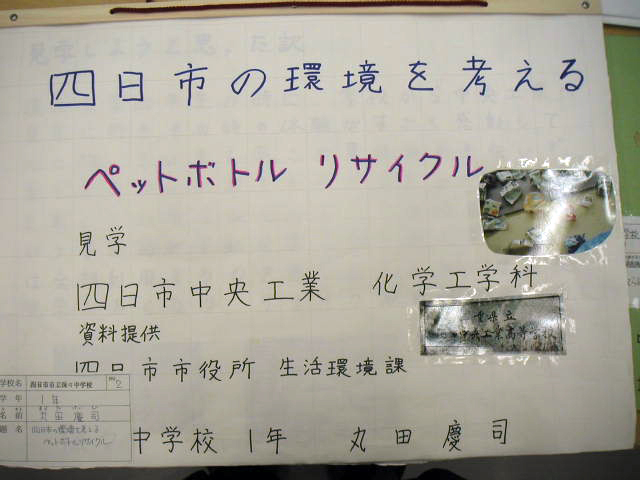 四日市の環境を考える
ペットボトル リサイクル
見学
四日市中央工業 化学工学科
資料提供
四日市市役所 生活環境課
中学校 1年 丸田 慶司
県立
中央工業高等学校
学校名
No 2
学年 1年
名前 丸田 慶司
題名 四日市の環境を考える
ペットボトルリサイクル